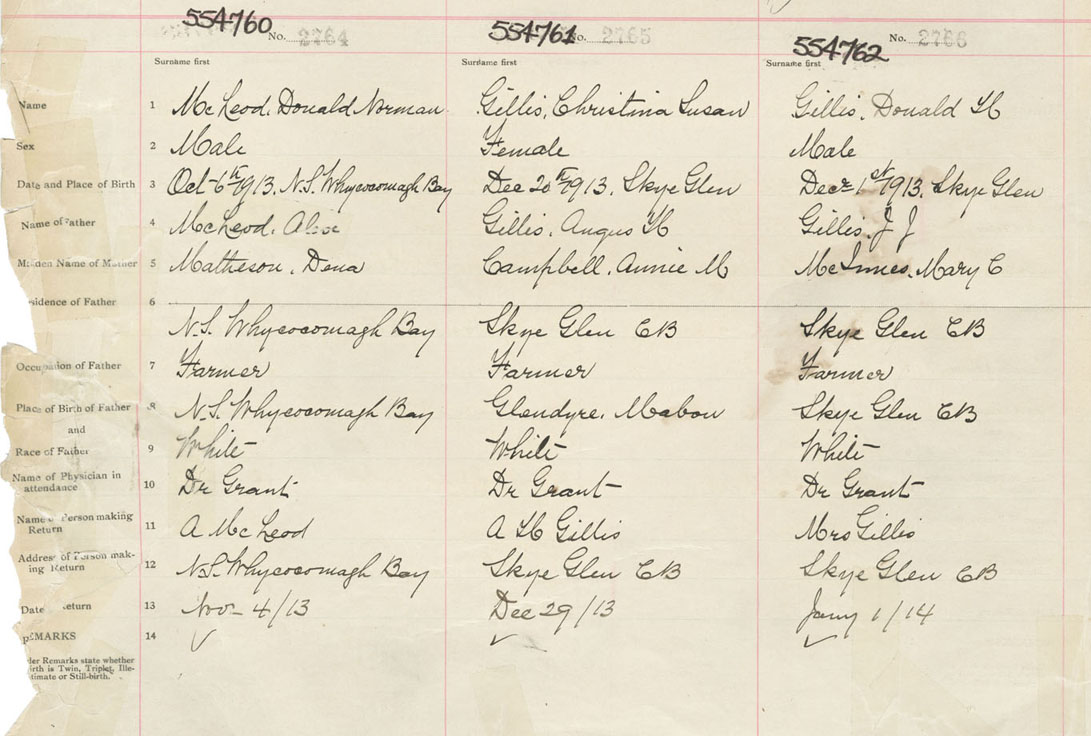 554760 No. 2764 554761 No. 2765 554762 No. 2766
Surname first Surname first Surname first
Name 1 McLeod, Donald Norman Gillis, Christina Susan Gillis, Donald H
Sex 2 Male Female Male
Date and Place of Birth 3 Oct 6th 1913, N.S. Whycocomagh Bay Dec 20th 1913, Skye Glen Dec 1st 1913, Skye Glen
Name of Father 4 McLeod, Gillis, Angus H Gillis, J J
Maiden Name of Mother 5 Matheson, Dena Campbell, Annie M McInnes, Mary C
sidence of Father 6
N.S. Whycocomagh Bay Skye Glen CB Skye Glen CB
Occupation of Father 7 Farmer Farmer Farmer
Place of Birth of Father 8 N.S. Whycocomagh Bay Glendyre, Mabou Skye Glen CB
and
Race of Father 9 White White White
Name of Physician in attendance 10 Dr Grant Dr Grant Dr Grant
Name of Person making Return 11 A McLeod A H Gillis Mrs Gillis
Address of Person making Return 12 N.S. Whycocomagh Bay Skye Glen CB Skye Glen CB
Date eturn 13 Nov 4/13 Dec 29/13 Jany 1/14
REMARKS 14
der Remarks state whether
irth is Twin, Triplet, Ille-
timate or Still-birth.